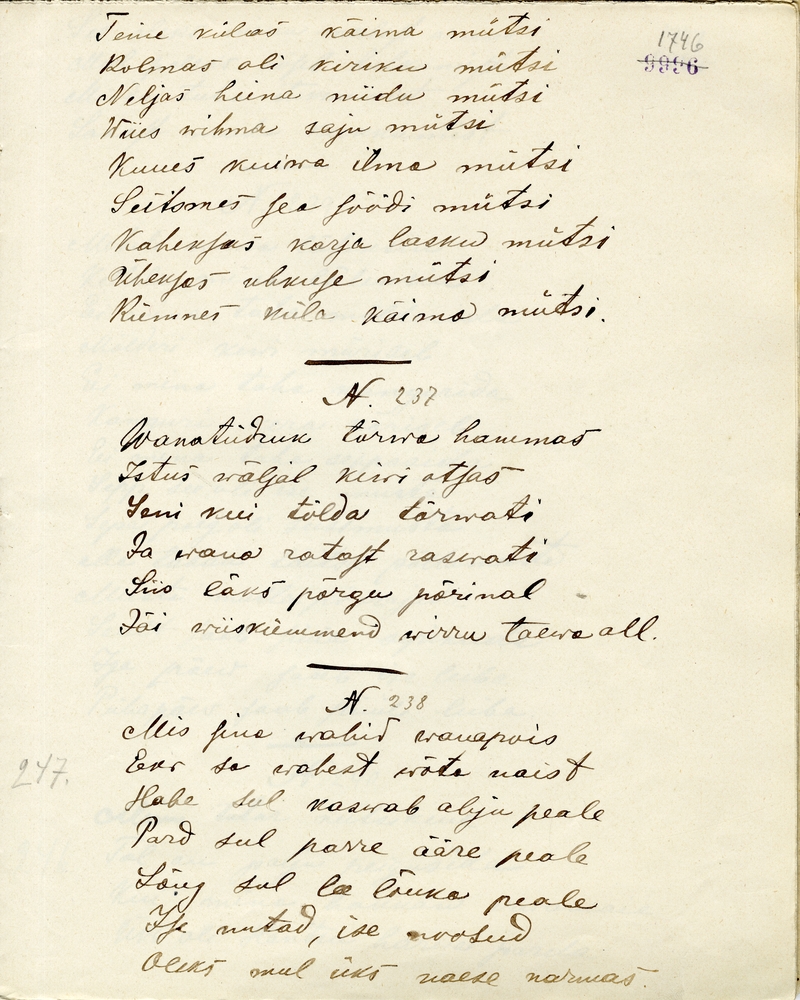 Teine külas käima mütsi
1746
9996
Kolmas oli kiriku mütsi
Neljas heina niidu mütsi
Wiies wihma saju mütsi
Kuues kuiwa ilma mütsi
Seitsmes sea söödi mütsi
Kaheksas karja lasku mütsi
Üheksas uhkuse mütsi
Kümnes küla käima mütsi.
N. 237
Wanatüdruk tõrwa hammas
Istus wäljal kiwi otsas
Seni kui tõlda tõrwati
Ja wana ratast raswati
Siis läks põrgu põrinal
Jäi wiiskümmend wirru taewa all.
N. 238
Mis sina wahid wanapois
247.
Ekr sa wahest wõta naist
Habe sul kaswab ahju peale
Pard sul parre ääre peale
Lõug sul lee lõuka peale
Ise nutad, ise noosud
Oleks mul üks naese narmas.